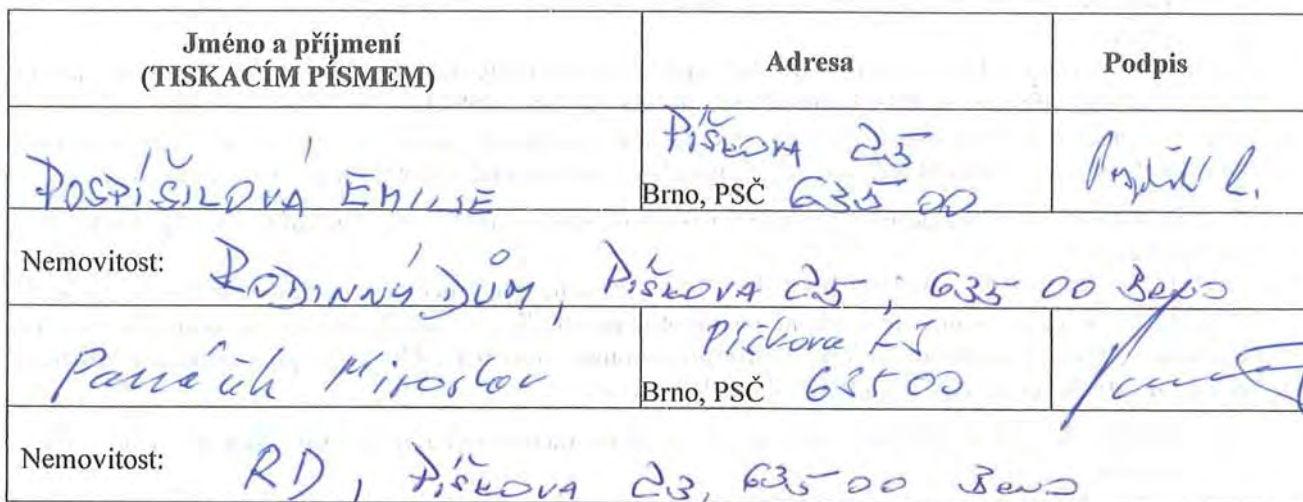 Jméno a příjmení
(TISKACÍM PÍSMEM)
Adresa
Podpis
POSPÍŠILOVÁ EMILIE
PÍŠKOVA 25
Brno, PSČ 635 00
Nemovitost: RODINNÝ DŮM, PÍŠKOVA 25, 635 00 BRNO
Miroslav
Píškova
Brno, PSČ 635 00
Nemovitost: RD, PÍŠKOVA 23, 635 00 BRNO